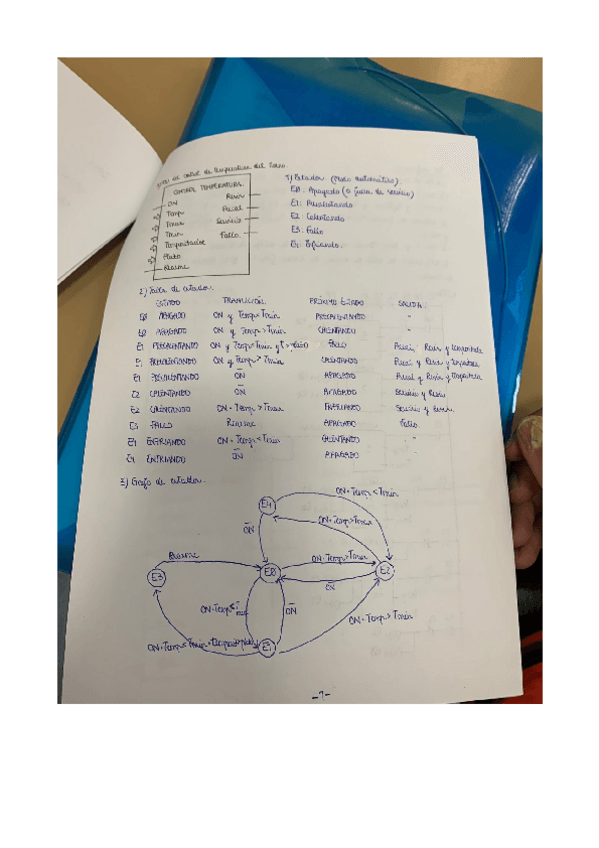 control de temperatura del horno.
CONTROL TEMPERATURA
ON
Temp
Tmax
Tmin
Temporizador
Plazo
Rearme
Resis
Precal
Servicio
Fallo
1) Estados (Modo automático)
E0: Apagado (o fuera de servicio)
E1: Precalentando
E2: Calentando
E3: Fallo
E4: Enfriando.
2) Tabla de estados.
ESTADO TRANSICIÓN PRÓXIMO ESTADO SALIDA
E0 APAGADO ON y Temp<Tmin PRECALENTANDO -
E0 APAGADO ON y Temp>Tmin CALENTANDO -
E1 PRECALENTANDO ON y Temp<Tmin y t>plazo FALLO Precal, Resis y temporizador
E1 PRECALENTANDO ON y Temp>Tmin CALENTANDO Precal y Resis y temporizador
E1 PRECALENTANDO O̅N̅ APAGADO Precal y Resis y temporizador
E2 CALENTANDO O̅N̅ APAGADO Servicio y Resis
E2 CALENTANDO ON · Temp > Tmax ENFRIANDO Servicio y Resis
E3 FALLO Rearme APAGADO Fallo
E4 ENFRIANDO ON · Temp < Tmin CALENTANDO -
E4 ENFRIANDO O̅N̅ APAGADO
3) Grafo de estados.
ON · Temp < Tmin
E4
ON · Temp > Tmax
O̅N̅
Rearme
ON · Temp > Tmin
E3
E0
E2
O̅N̅
ON · Temp <
O̅N̅
ON · Temp > Tmin
ON · Temp < Tmin ·
E1
-7-